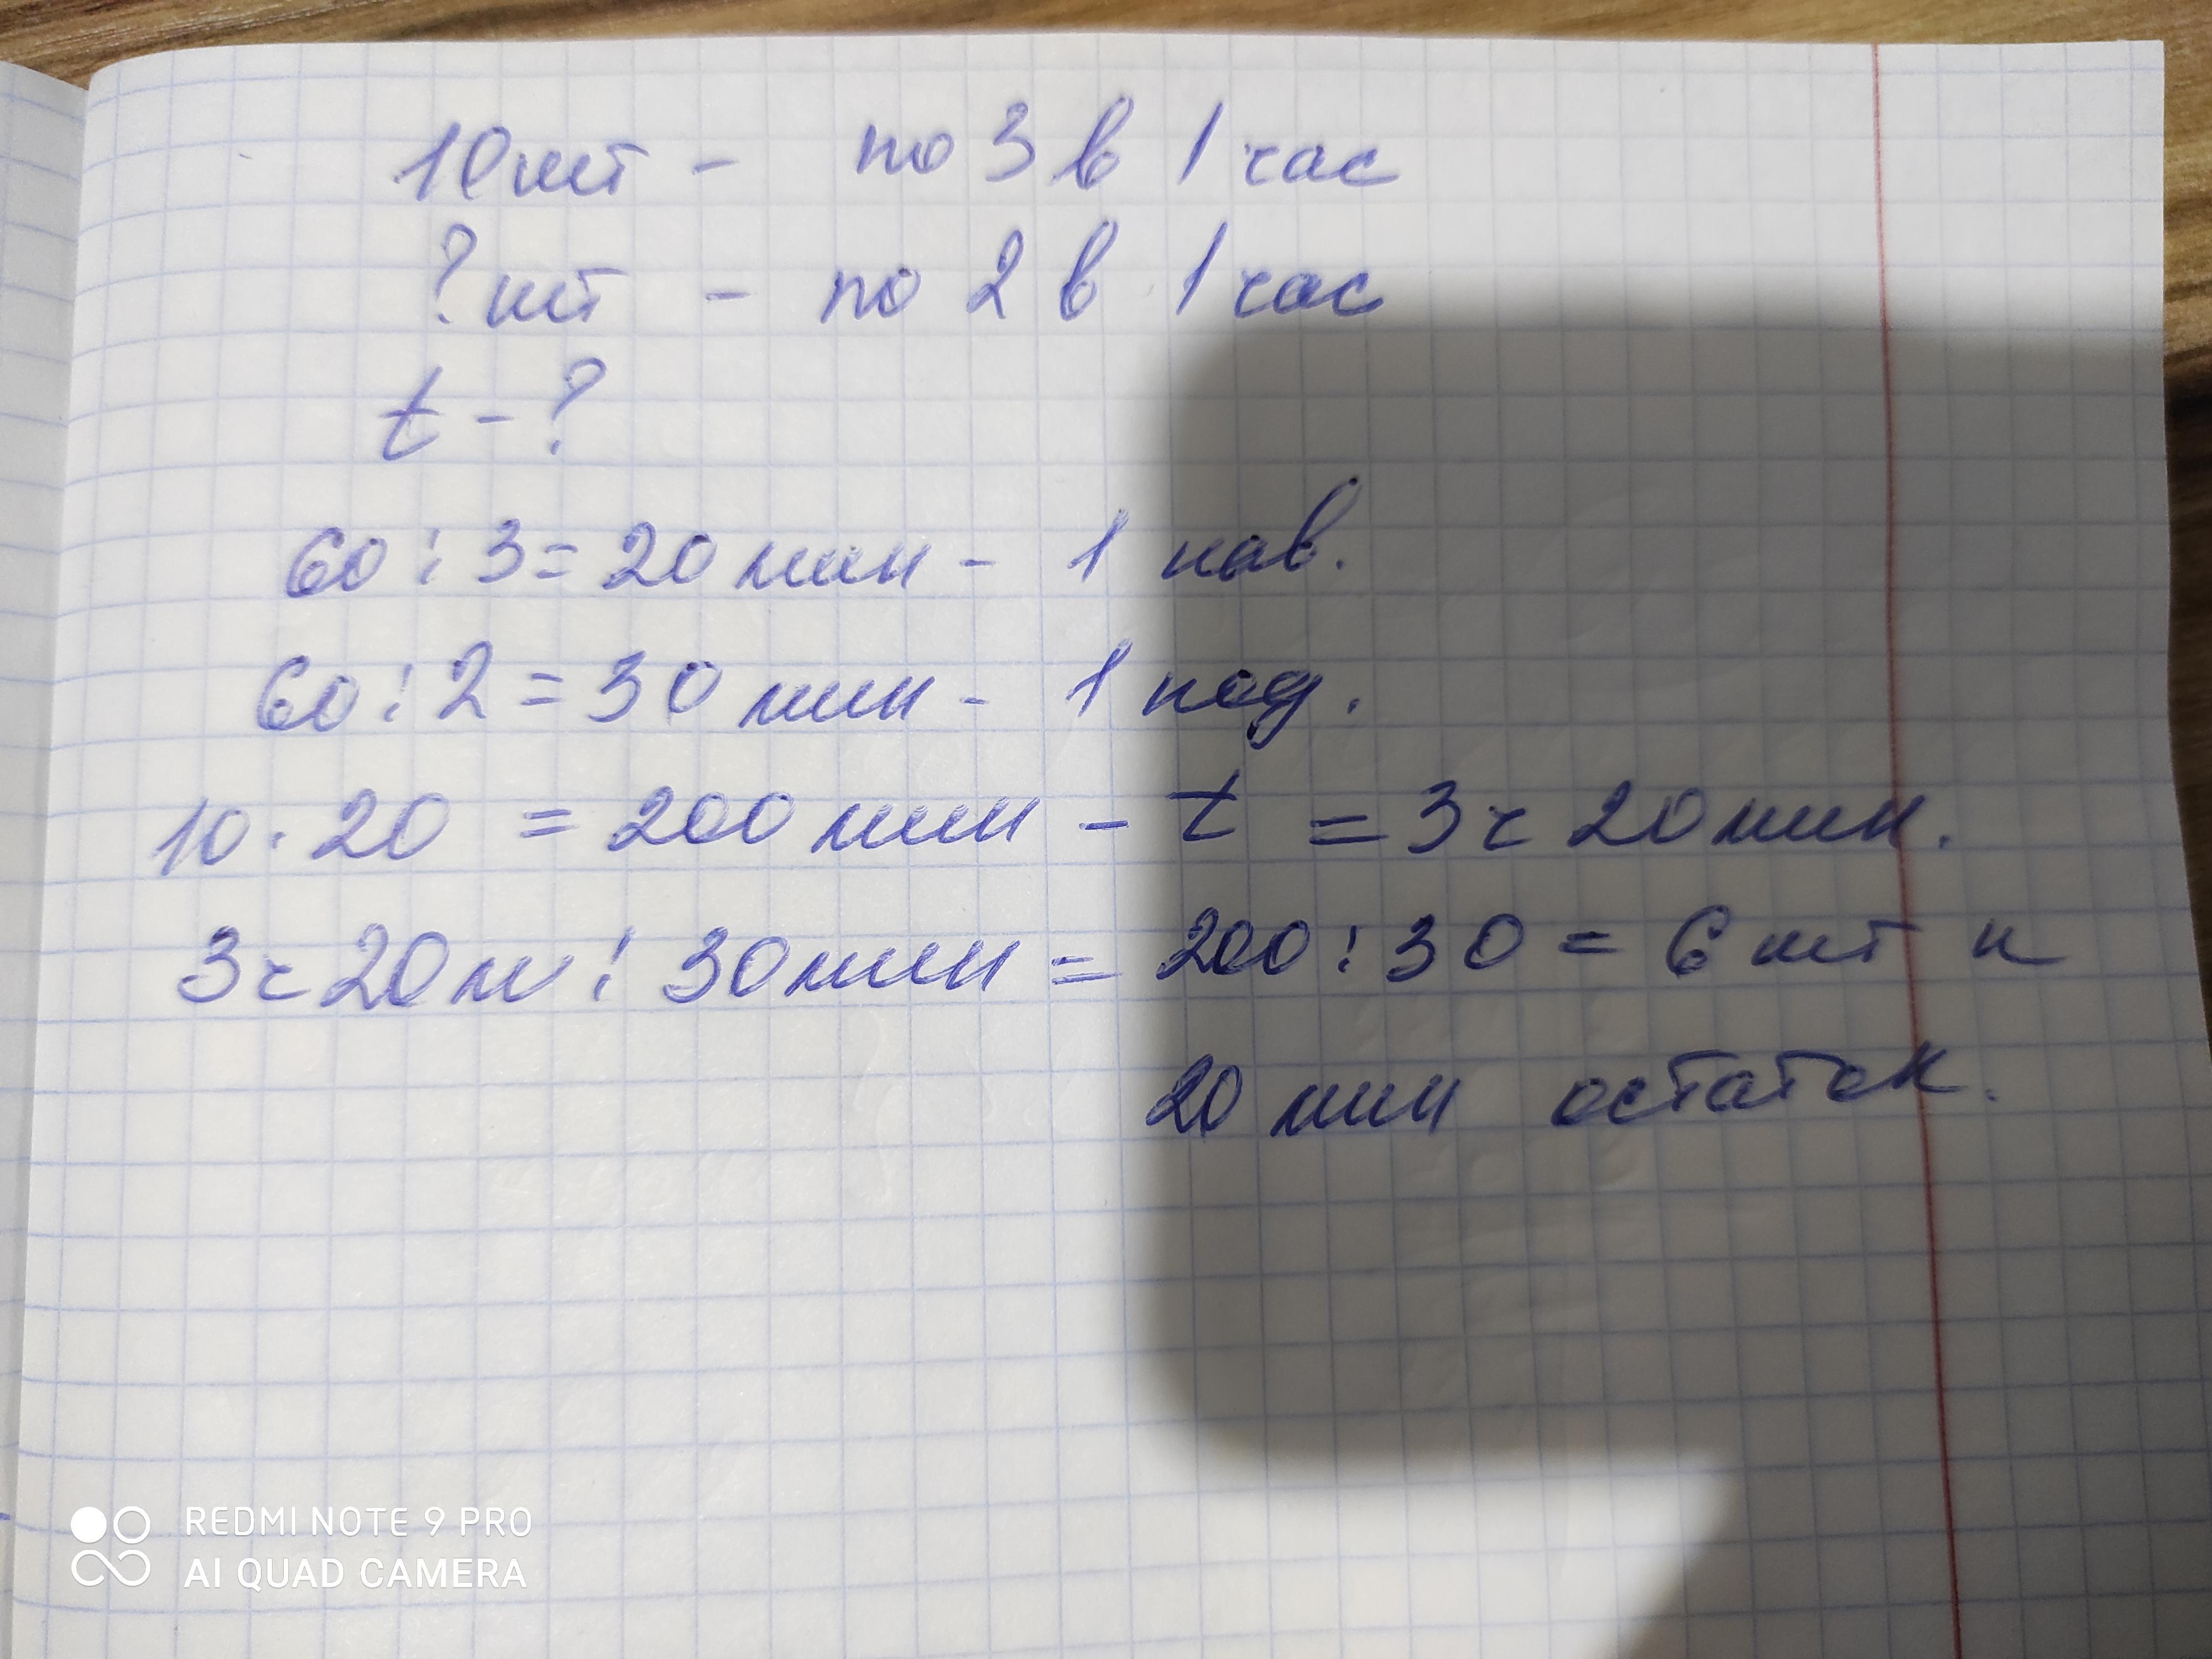 10 шт - по 3 в 1 час
? шт - по 2 в 1 час
t - ?
60 : 3 = 20 мин - 1 нав.
60 : 2 = 30 мин - 1 под.
10 · 20 = 200 мин - t = 3 ч 20 мин.
3 ч 20 м : 30 мин = 200 : 30 = 6 шт и
20 мин остаток.
REDMI NOTE 9 PRO
AI QUAD CAMERA